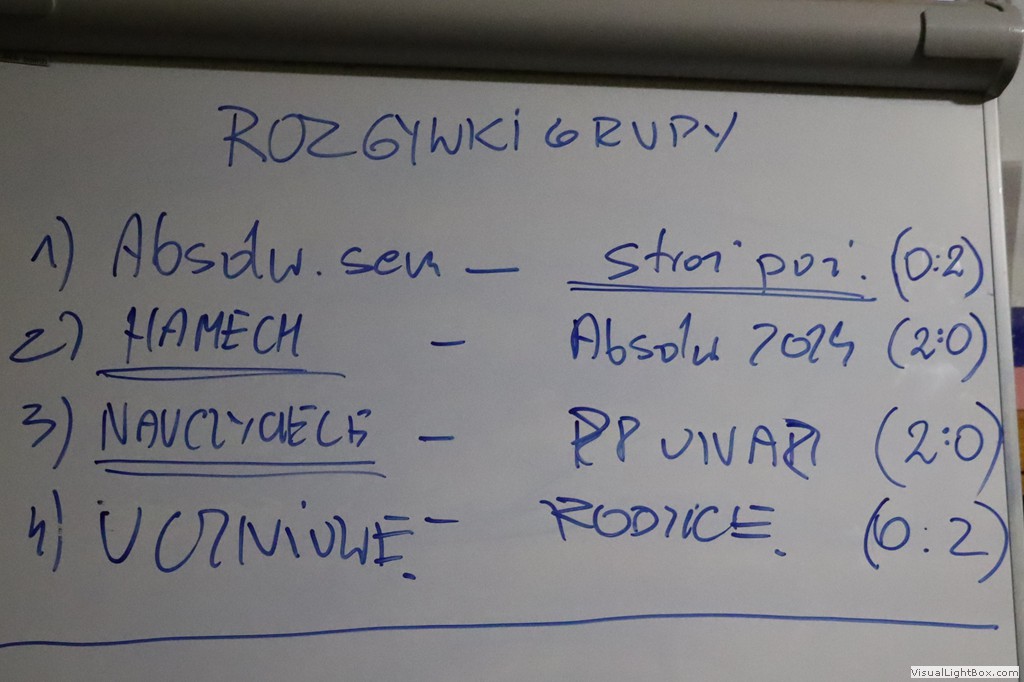 ROZGYWKI GRUPY
1) Absolw. sem – stroi poż. (0:2)
2) HAMECH – Absolw 2024 (2:0)
3) NAUCZYCIELE – (2:0)
4) UCZNIOWIE. – RODZICE. (0:2)
VisualLightBox.com